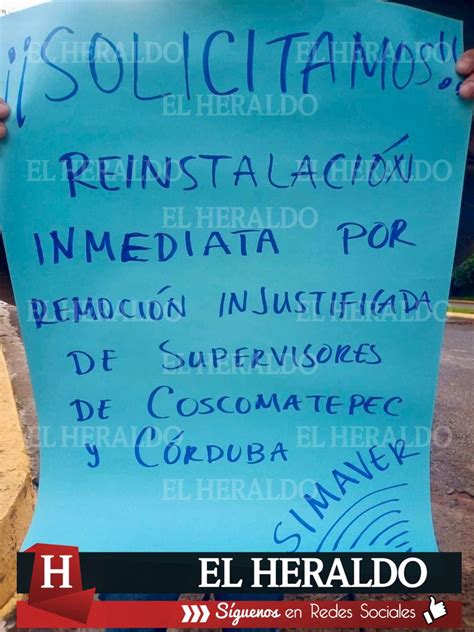 ¡¡SOLICITAMOS!!
REINSTALACIÓN
INMEDIATA POR
REMOCIÓN INJUSTIFIGADA
DE SUPERVISORES
DE COSCOMATEPEC
y CÓRDUBA
SIMAVER
EL HERALDO
EL HERALDO
EL HERALDO
EL HERALDO
EL HERALDO
EL HERALDO
EL HERALDO
EL HERALDO
EL HERALDO
EL HERALDO
EL HERALDO
EL HERALDO
EL HERALDO
H EL HERALDO
Síguenos en Redes Sociales